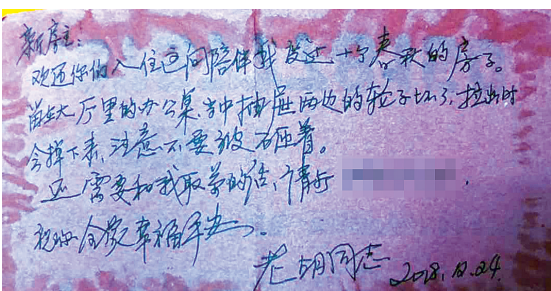 新房主：
欢迎你们入住这间陪伴我度过十个春秋的房子。
留在大厅里的办公桌当中抽屉两边的轮子坏了，拉出时
会掉下来，注意不要被砸着。
还需要和我联系的话，请与
祝你全家幸福平安。
老胡同志 2018.12.24.